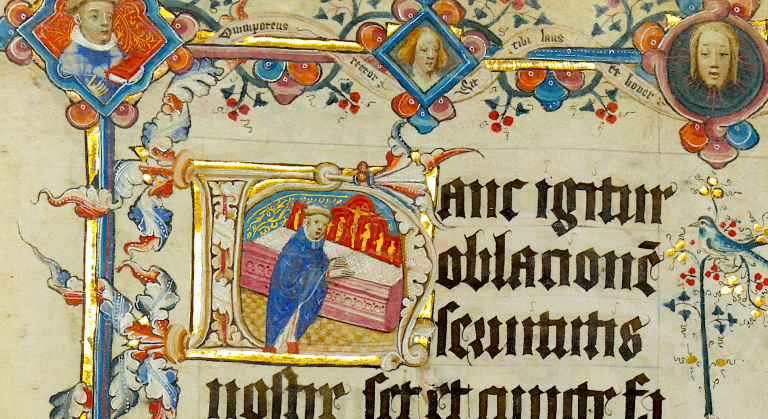 Omnipotens
rector
Sit
tibi laus
et honor
Hanc igitur
oblationē
seruitutis
nostre set et cuncte fa